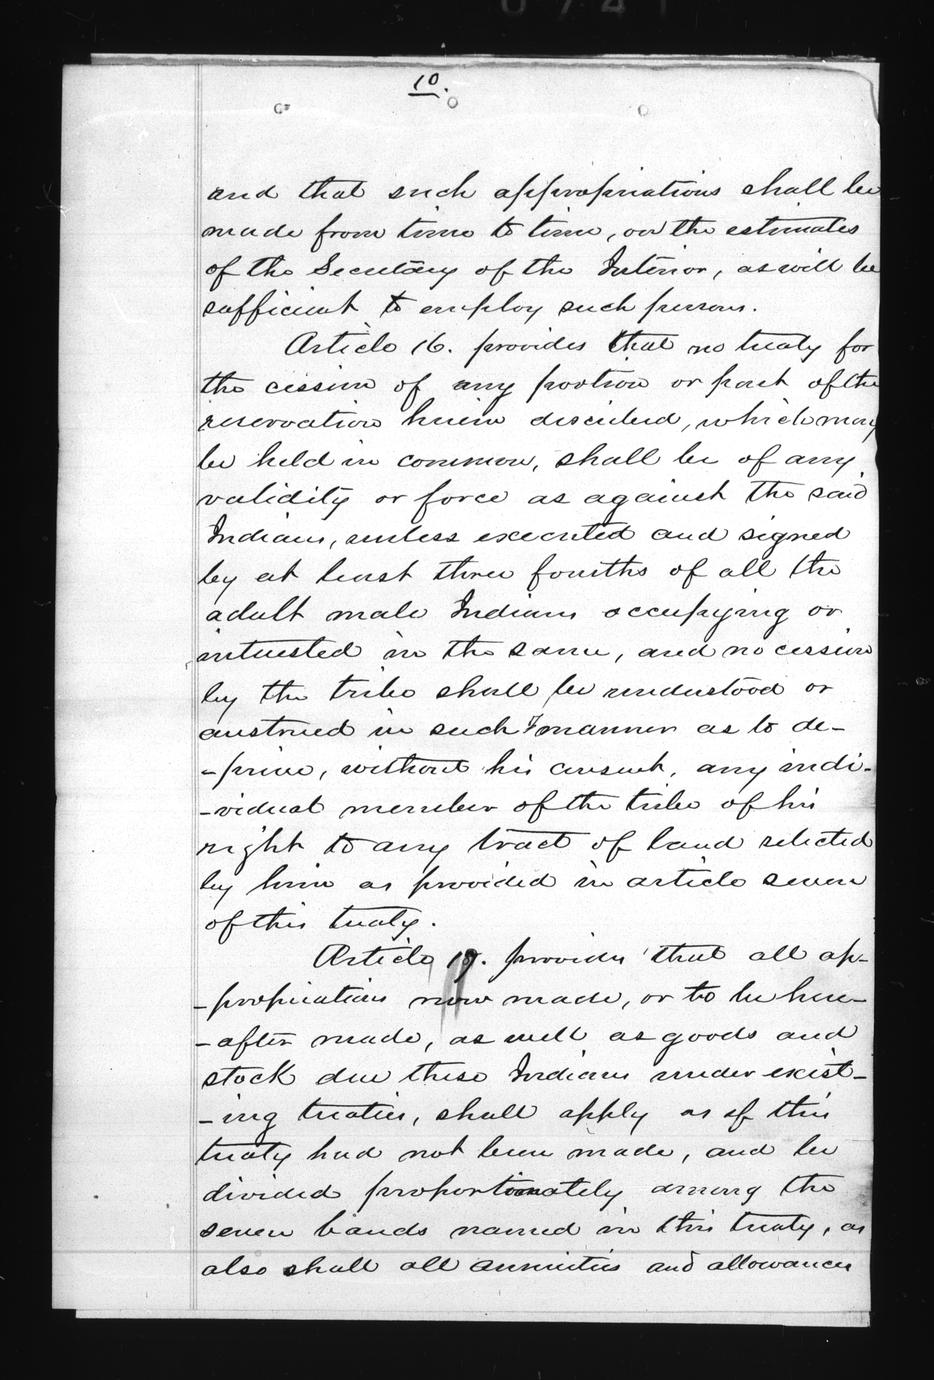 10.
and that such appropriations shall be
made from time to time, on the estimates
of the Secretary of the Interior, as will be
sufficient to employ such persons.
Article 16. provides that no treaty for
the cession of any portion or part of the
reservation herein described, which may
be held in common, shall be of any
validity or force as against the said
Indians, unless executed and signed
by at least three fourths of all the
adult male Indians occupying or
interested in the same, and no cession
by the tribe shall be understood or
construed in such manner as to de-
-prive, without his consent, any indi-
-vidual member of the tribe of his
right to any tract of land selected
by him as provided in article seven
of this treaty.
Article 17. provides that all ap-
-propriations now made, or to be here-
-after made, as well as goods and
stock due these Indians under exist-
-ing treaties, shall apply as if this
treaty had not been made, and be
divided proportionately among the
seven bands named in this treaty, as
also shall all annuities and allowances